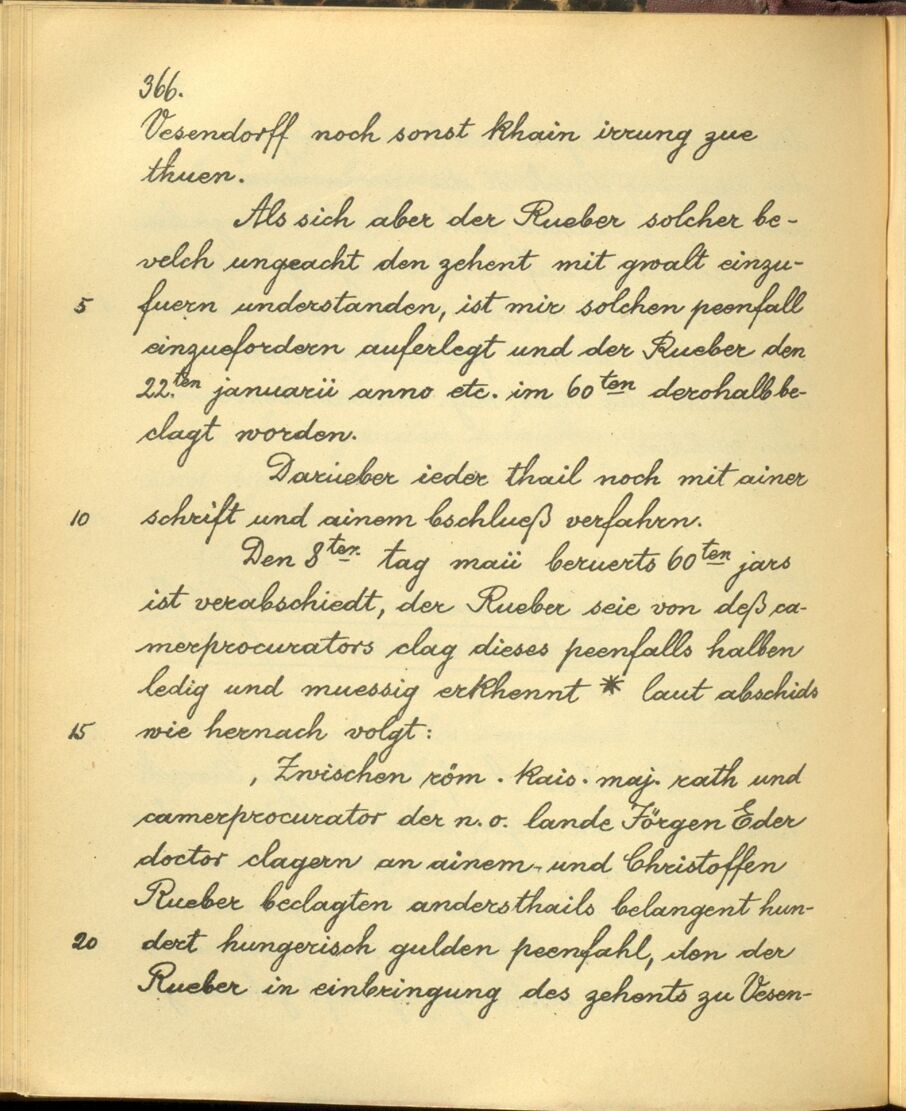 366.
Vesendorff noch sonst khain irrung zue
thuen.
Als sich aber der Rueber solcher be-
velch ungeacht den zehent mit gwalt einzu-
5 fuern understanden, ist mir solchen peenfall
einzuefordern auferlegt und der Rueber den
22.ten januarii anno etc. im 60ten derohalb be-
clagt worden.
Darüeber ieder thail noch mit ainer
10 schrift und ainem bschlueß verfahrn.
Den 8ten tag maii beruerts 60ten jars
ist verabschiedt, der Rueber seie von deß ca-
merprocurators clag dieses peenfalls halben
ledig und muessig erkhennt * laut abschids
15 wie hernach volgt:
, Zwischen röm. kais. maj. rath und
camerprocurator der n. o. lande Jörgen Eder
doctor clagern an ainem- und Christoffen
Rueber beclagten andersthails belangent hun-
20 dert hungerisch gulden peenfahl, den der
Rueber in einbringung des zehents zu Vesen-